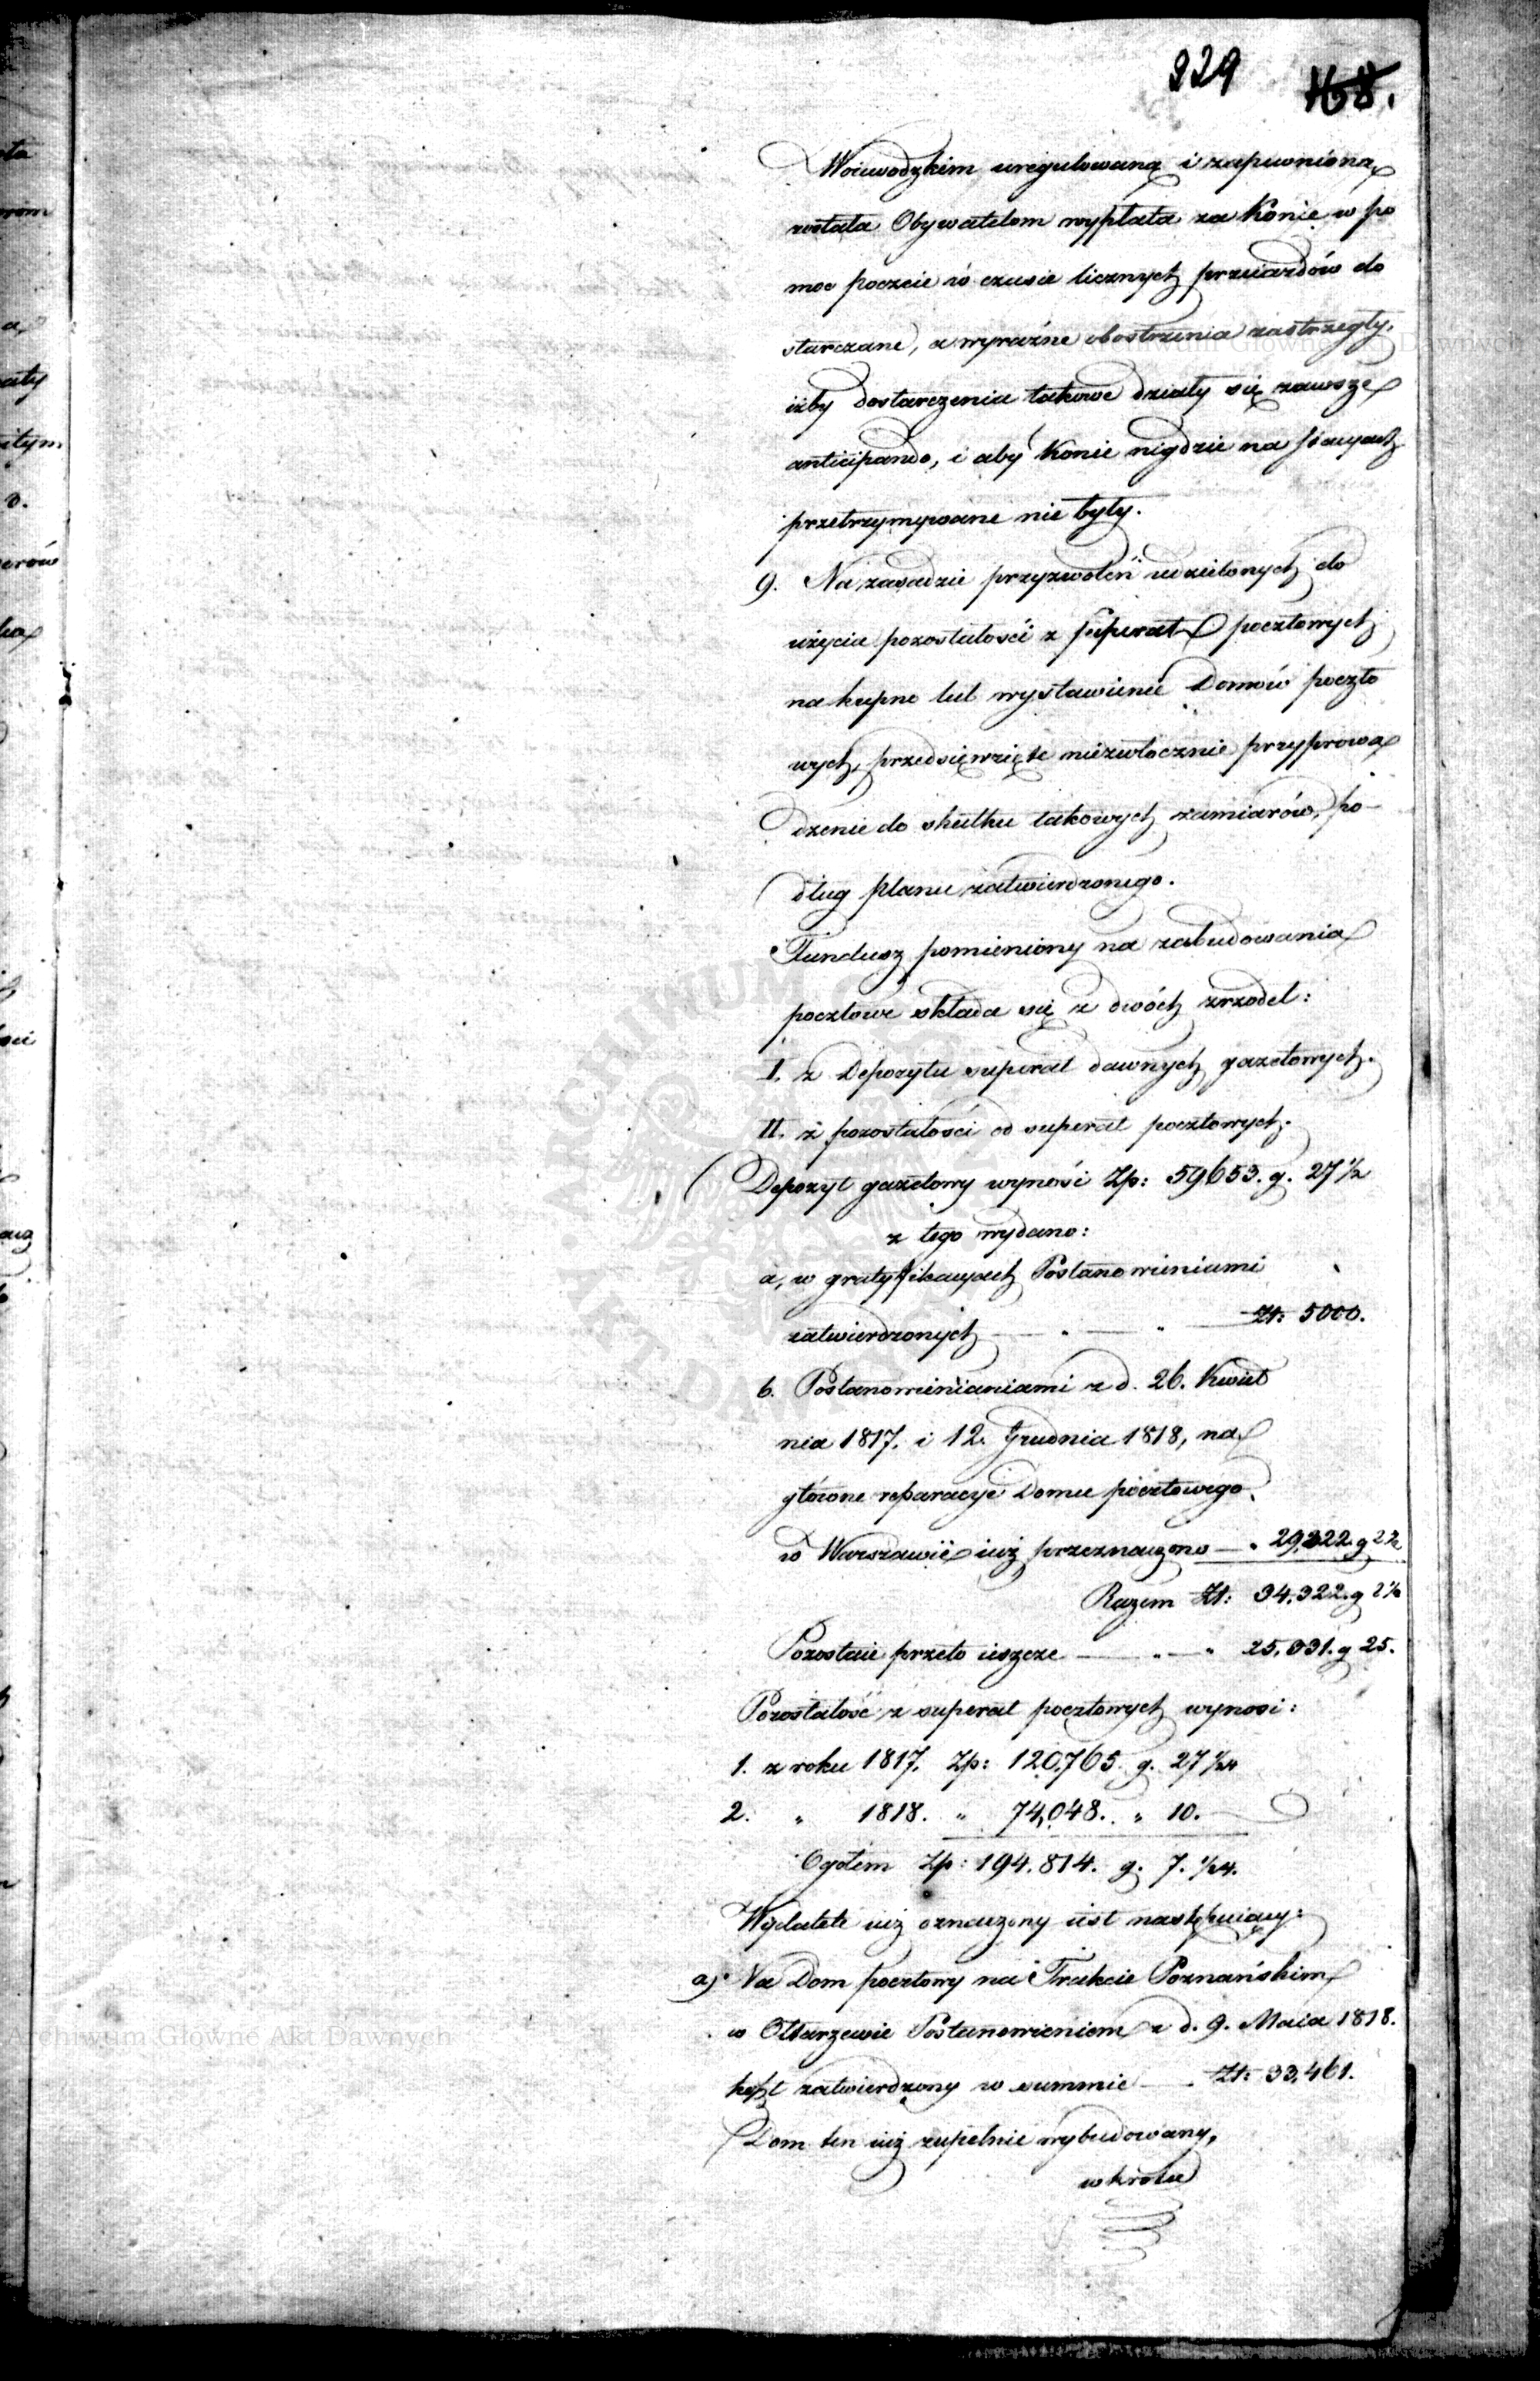 229 168.
Woiewodzkim uregulowaną i zapewnioną
została Obywatelom wypłata za Konie w po
moc poczcie w czasie licznych przeiazdów do
starczane, a wyraźne obostrzenia zastrzegły,
iżby dostarczenia takowe działy się zawsze
anticipando, i aby Konie nigdzie na stacyach
przetrzymywane nie były.
9. Na zasadzie przyzwoleń udzielonych do
użycia pozostałości z superat pocztowych
na kupno lub wystawienie Domów poczto
wych, przedsięwzięte niezwłocznie przyprowa
dzenie do skutku takowych zamiarów, po-
dług planu zatwierdzonego.
Fundusz pomieniony na zabudowania
pocztowe składa się z dwóch zrzodeł:
I. z Depozytu superat dawnych gazetowych.
II. z pozostałości od superat pocztowych.
Depozyt gazetowy wynosi Zp: 59653. g. 27 1/2
z tego wydano:
a, w gratyfikacyach Postanowieniami
zatwierdzonych — " — " — Zł: 5000.
b. Postanowienianiami z d. 26. Kwiet
nia 1817. i 12. Grudnia 1818, na
główne reparacye Domu pocztowego
w Warszawie iuż przeznaczono — " 29,322 g 2 1/2
Razem Zł: 34.322. g 2 1/2
Pozostaie przeto ieszcze — " — " 25,331. g 25.
Pozostałość z superat pocztowych wynosi:
1. z roku 1817. Zp: 120,765. g. 27 1/24
2. " 1818. " 74,048. " 10.
Ogółem Zp: 194.814. g. 7. 1/24.
Wydatek iuż oznaczony iest następuiący:
a) Na Dom pocztowy na Trakcie Poznańskim
w Ołtarzewie Postanowieniem z d. 9. Maia 1818.
koszt zatwierdzony w summie — . Zł: 33,461.
Dom ten iuż zupełnie wybudowany,
w krotce
Archiwum Główne Akt Dawnych
Archiwum Główne Akt Dawnych